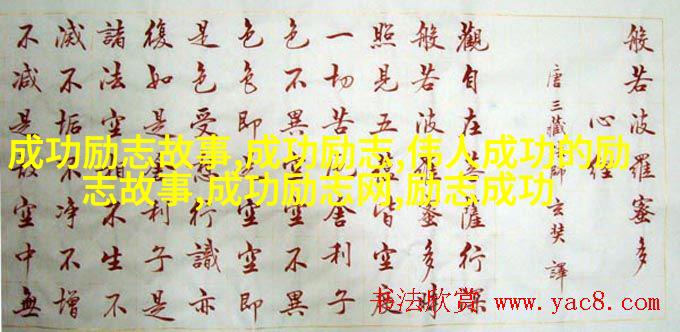 般若波羅蜜多
心經
唐三藏法師玄奘譯
觀自在菩薩行深
般若波羅蜜多時
照見五蘊皆空度
一切苦厄舍利子
色不異空空不異
色色即是空空即
是色受想行識亦
復如是舍利子是
諸法空相不生不
滅不垢不净不增
不減是故空中無
成功励志故事,成功励志,伟人成功的励
志故事,成功励志网,励志成功
书法欣赏 www.yac8.com